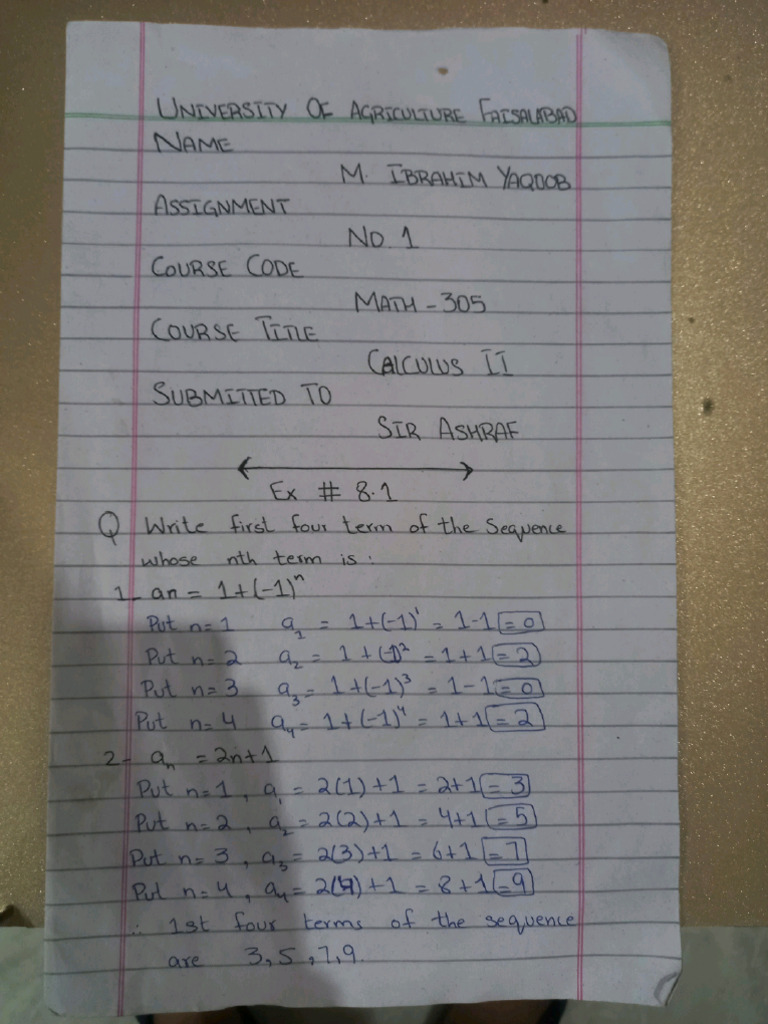 UNIVERSITY OF AGRICULTURE FAISALABAD
NAME
M. IBRAHIM YAQOOB
ASSIGNMENT
NO 1
COURSE CODE
MATH - 305
COURSE TITLE
CALCULUS II
SUBMITTED TO
SIR ASHRAF
Ex # 8.1
Q Write first four term of the Sequence
whose nth term is :
1- an = 1+(-1)ⁿ
Put n=1 a₁ = 1+(-1)¹ = 1-1 = 0
Put n=2 a₂ = 1+(-1)² = 1+1 = 2
Put n=3 a₃ = 1+(-1)³ = 1-1 = 0
Put n=4 a₄ = 1+(-1)⁴ = 1+1 = 2
2- aₙ = 2n+1
Put n=1, a₁ = 2(1)+1 = 2+1 = 3
Put n=2, a₂ = 2(2)+1 = 4+1 = 5
Put n=3, a₃ = 2(3)+1 = 6+1 = 7
Put n=4, a₄ = 2(4)+1 = 8+1 = 9
∴ 1st four terms of the sequence
are 3,5,7,9.